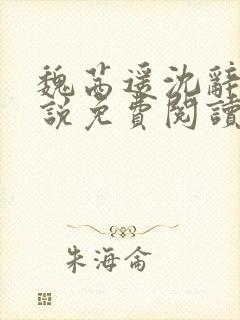 魏茜遥沈辭
說免費閱讀
朱海侖